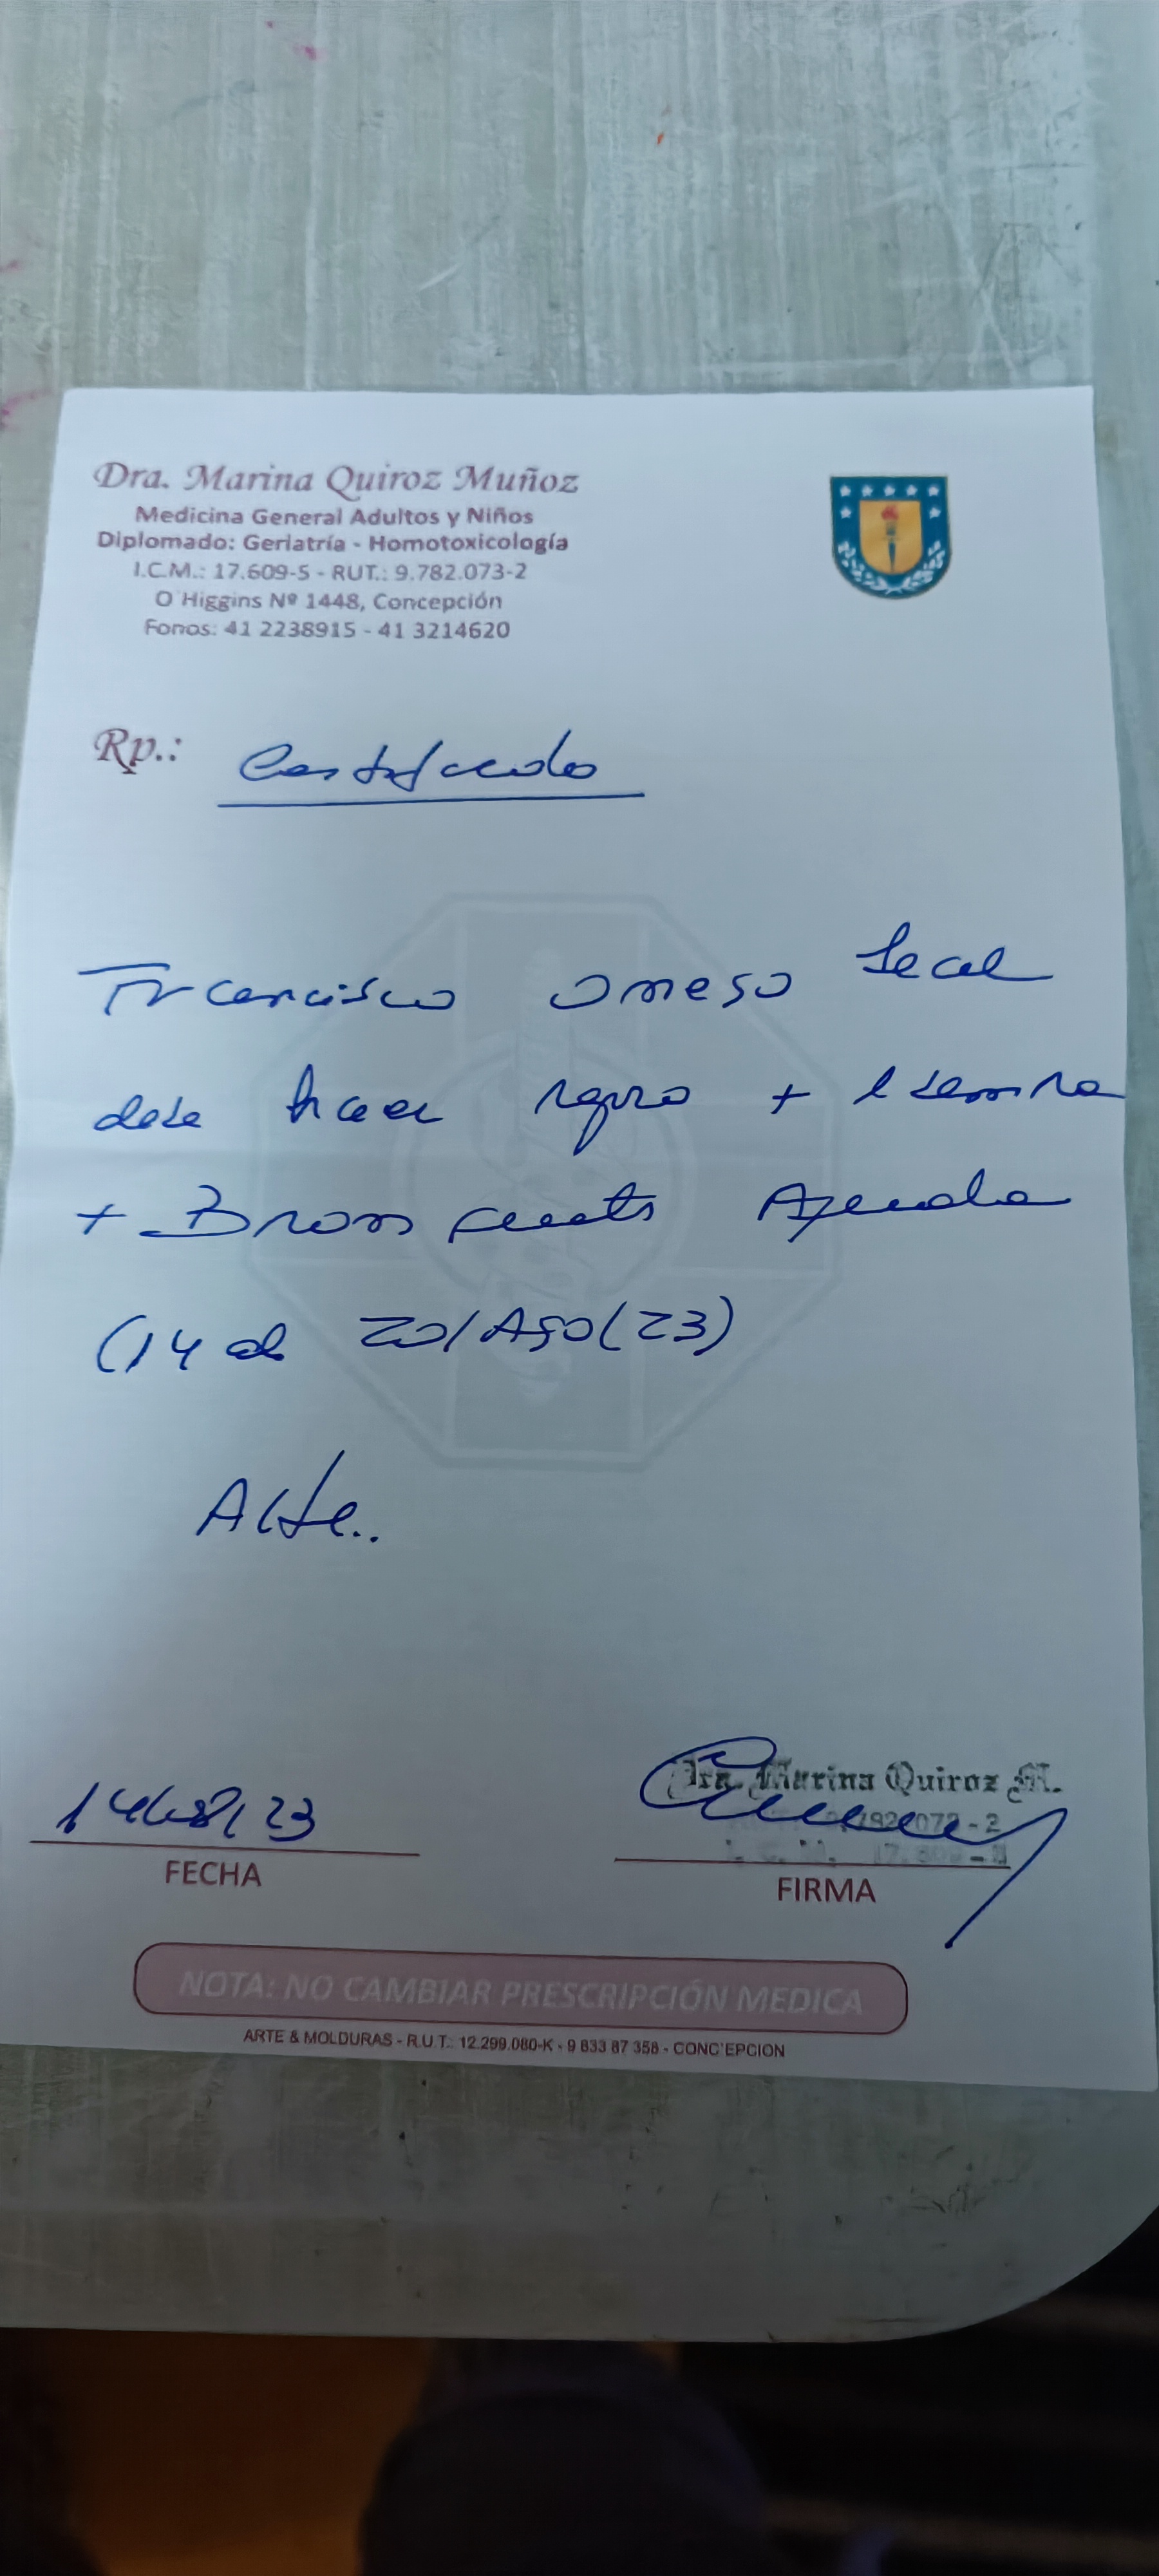 Dra. Marina Quiroz Muñoz
Medicina General Adultos y Niños
Diplomado: Geriatría - Homotoxicología
I.C.M.: 17.609-5 - RUT.: 9.782.073-2
O'Higgins Nº 1448, Concepción
Fonos: 41 2238915 - 41 3214620
Rp.: Certificado
Francisco
debe hacer reposo + 1 semana
+ Bronquitis Aguda
(14 al 20/Ago/23)
Atte..
14/08/23
FECHA
Dra. Marina Quiroz M.
FIRMA
NOTA: NO CAMBIAR PRESCRIPCIÓN MEDICA
ARTE & MOLDURAS - R.U.T.: 12.299.080-K - 9 833 87 358 - CONCEPCION